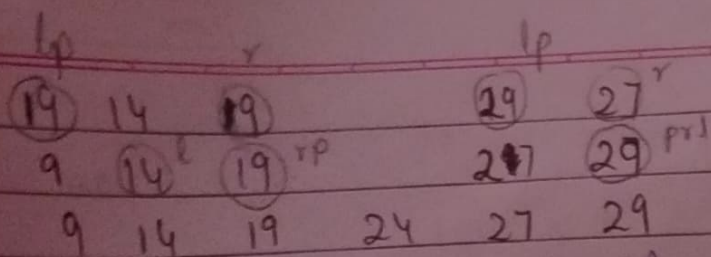 lp r lp
19 14 19 29 27 r
9 14 l 19 rp 27 29 prl
9 14 19 24 27 29